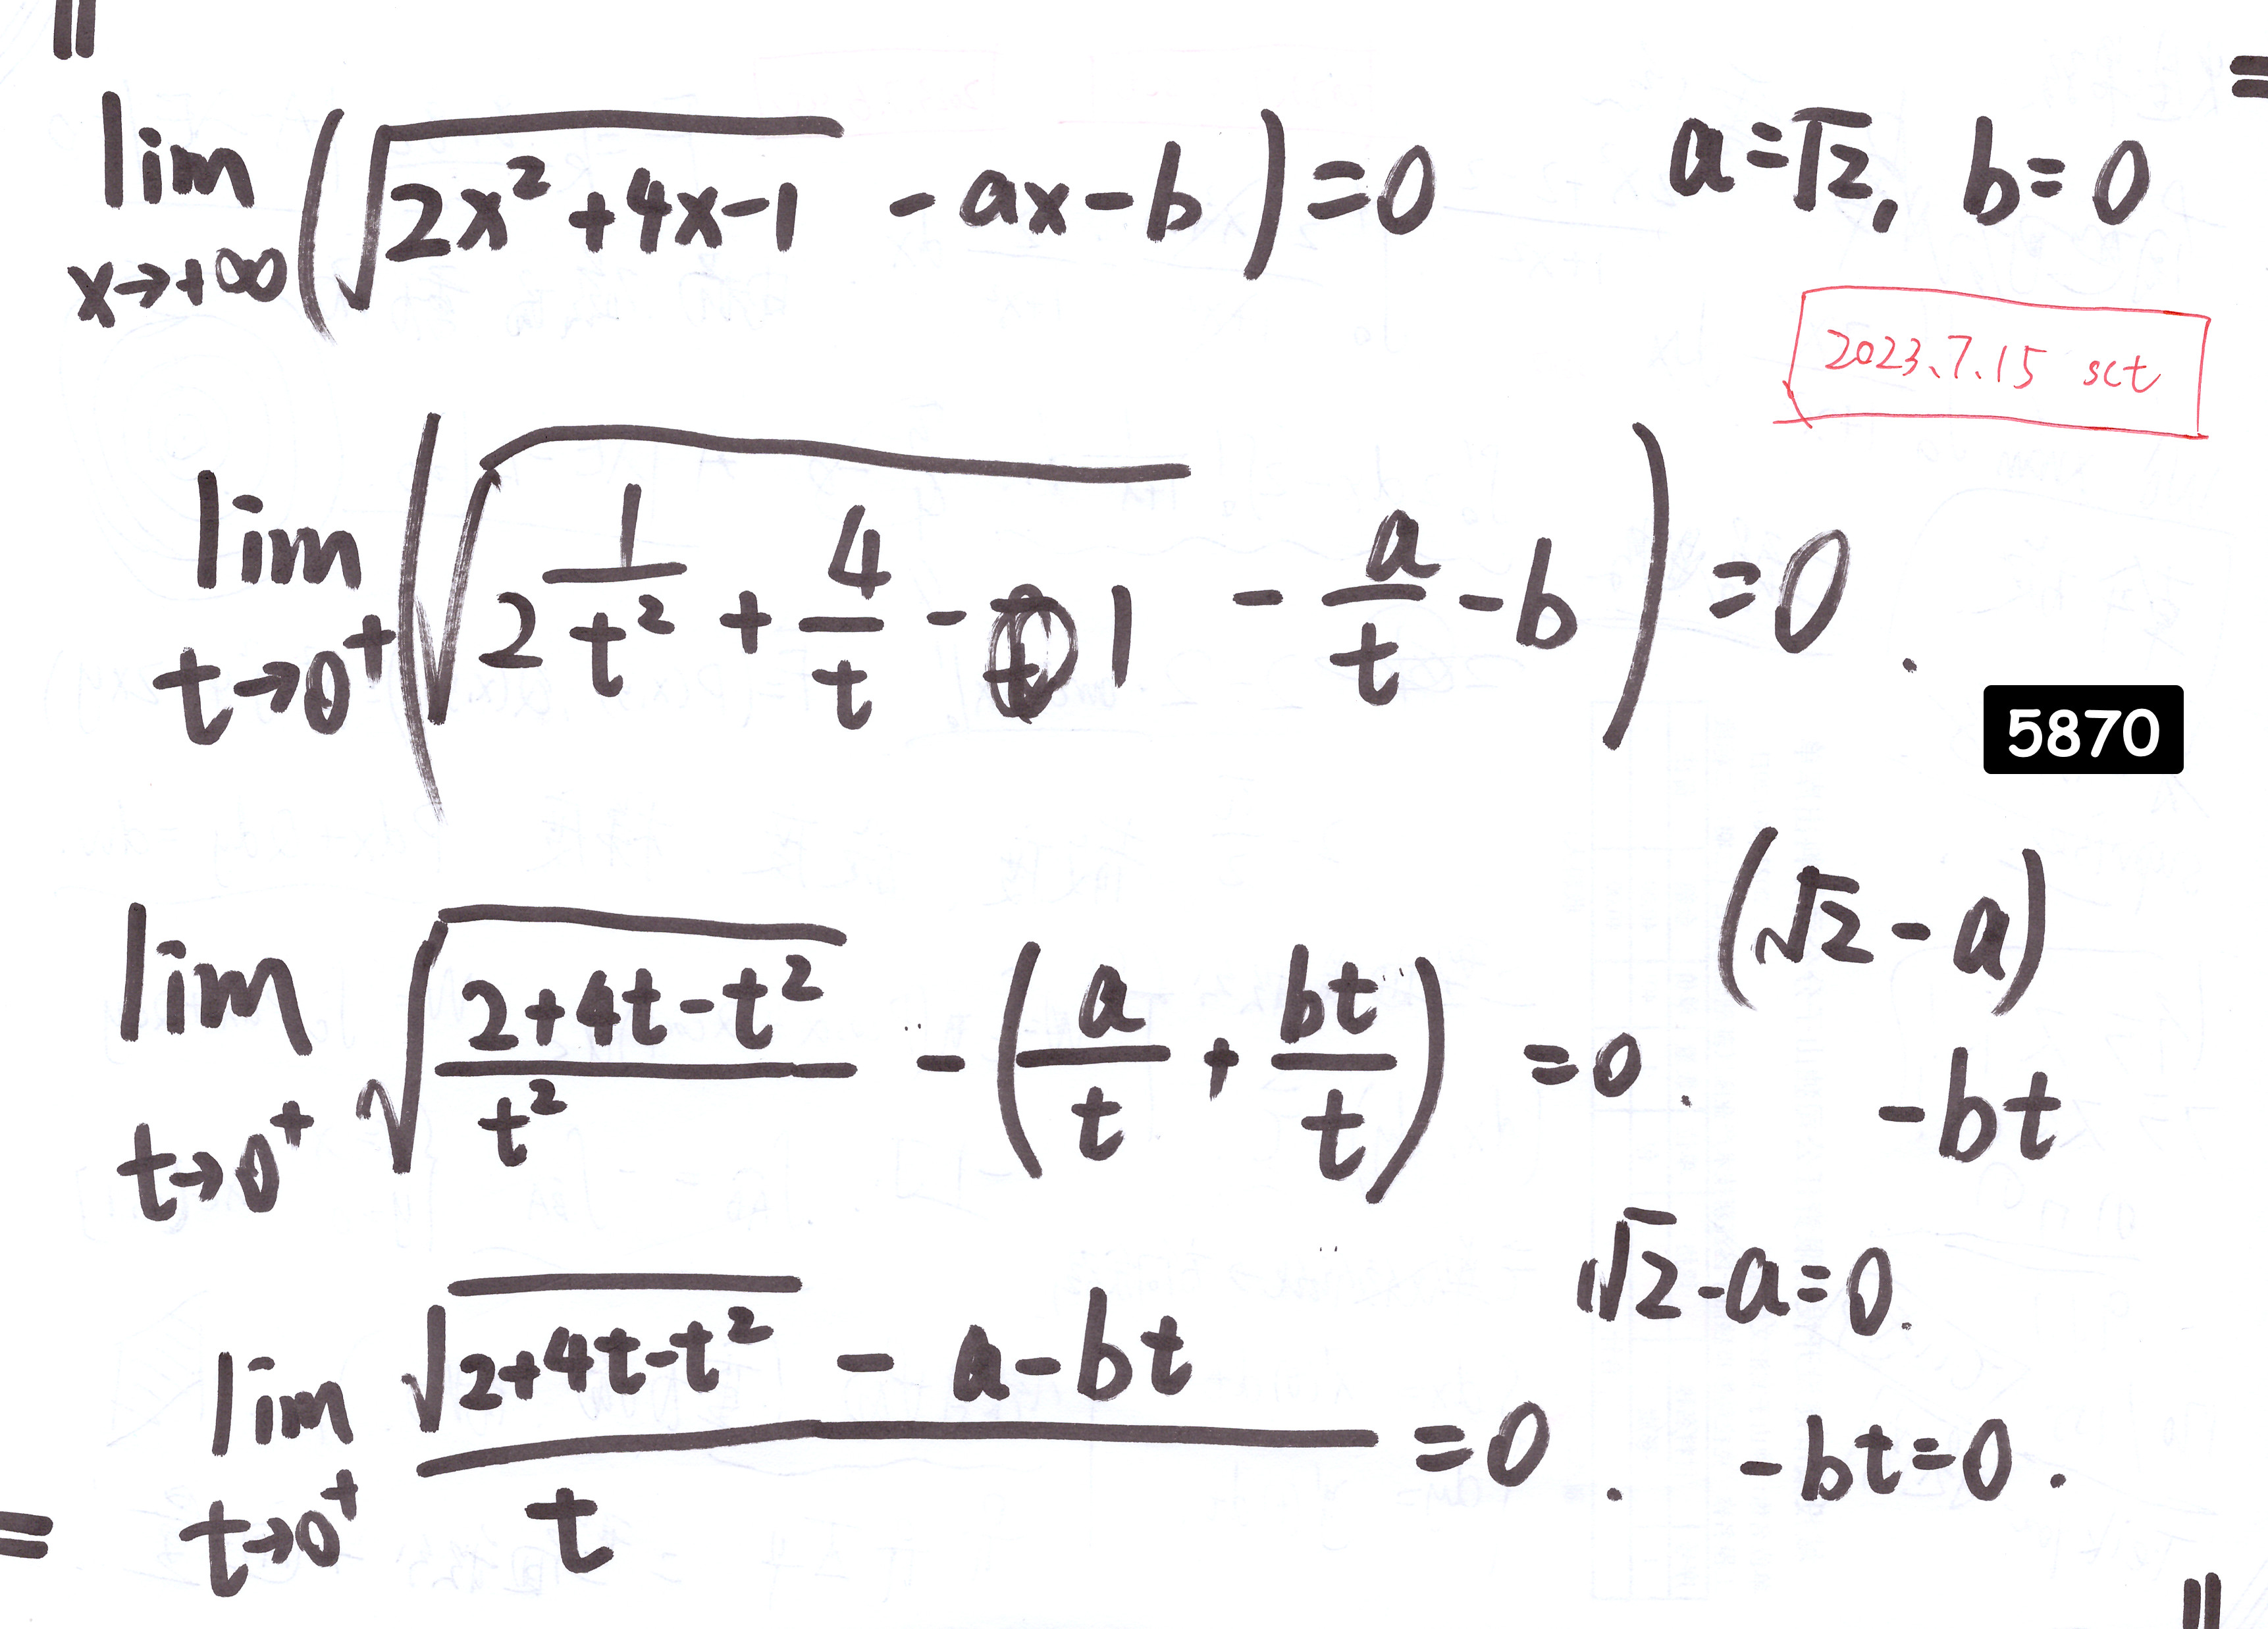 lim x→+∞ (√(2x² + 4x - 1) - ax - b) = 0
a = √2, b = 0
2023.7.15 sct
lim t→0⁺ (√(2 1/t² + 4/t - 1) - a/t - b) = 0.
5870
lim t→0⁺ √((2+4t-t²)/t²) - (a/t + bt/t) = 0.
(√2 - a)
-bt
lim t→0⁺ (√(2+4t-t²) - a - bt)/t = 0.
√2 - a = 0.
-bt = 0.